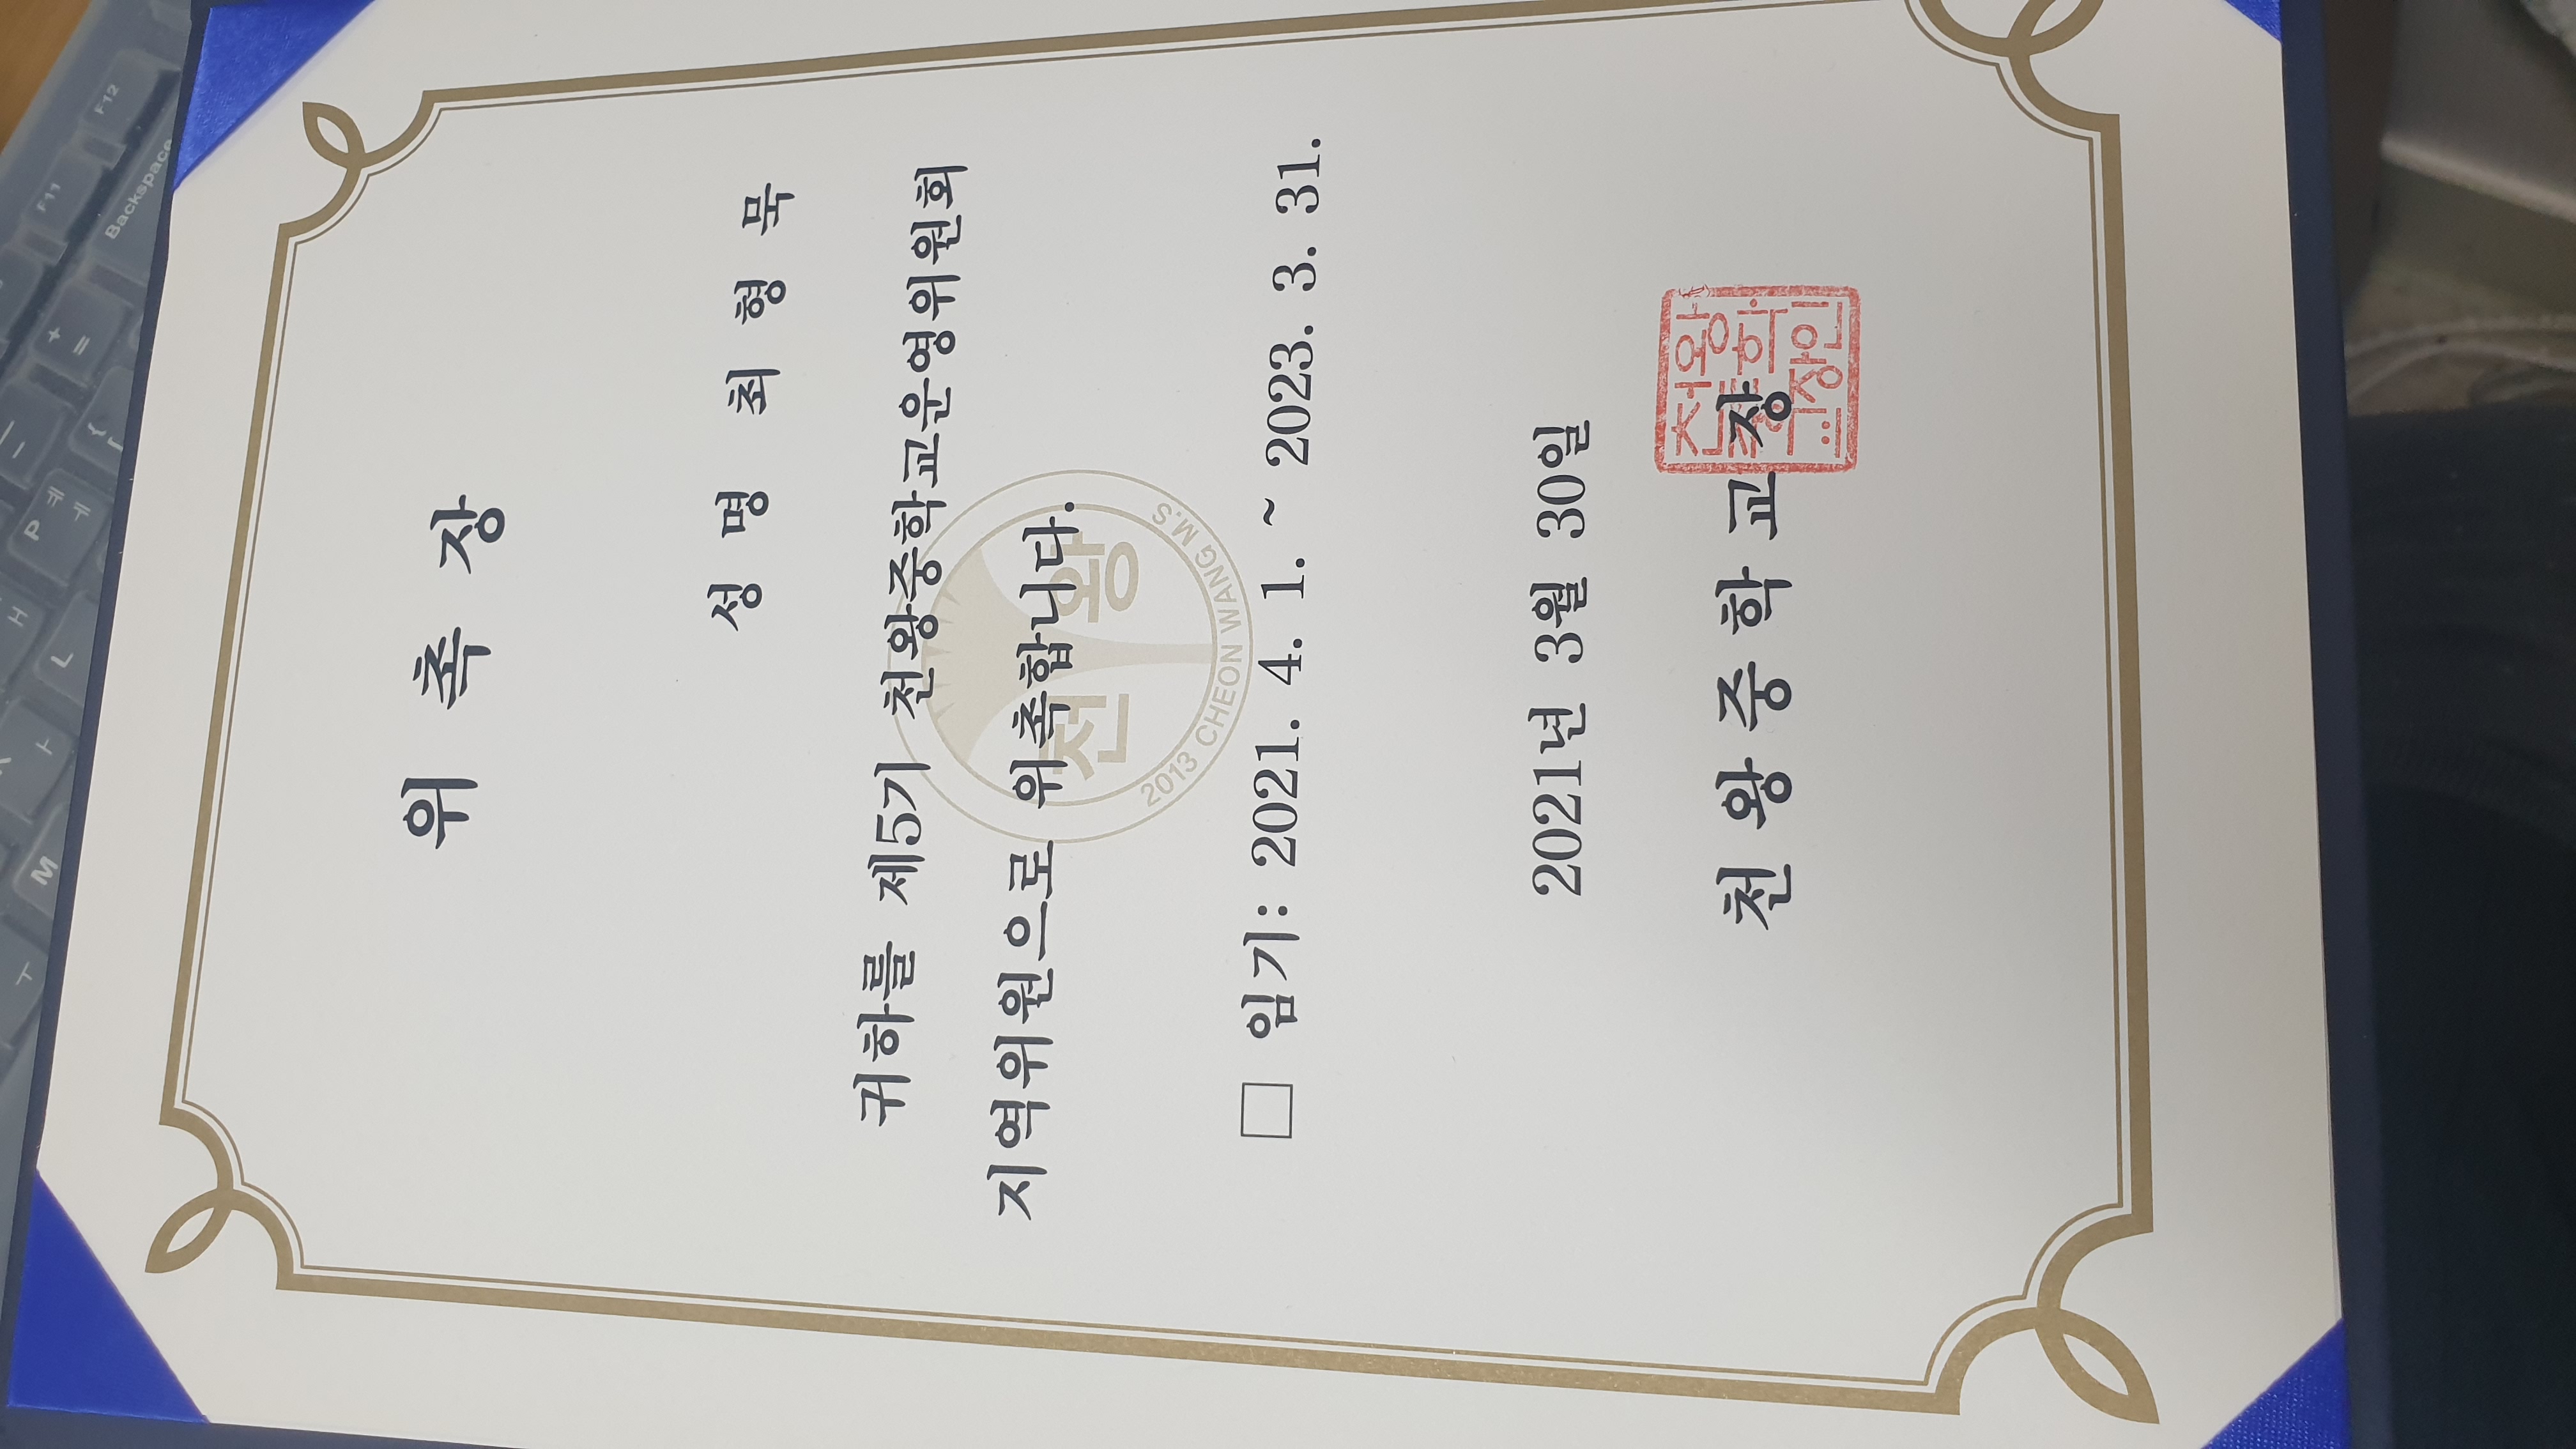 위 촉 장
성 명 최 형 묵
귀하를 제5기 천왕중학교운영위원회
지역위원으로 위촉합니다.
□ 임기: 2021. 4. 1. ~ 2023. 3. 31.
2021년 3월 30일
천 왕 중 학 교 장
천왕
중학
교장인
천 왕
2013 CHEON WANG M.S
F12
F11
Backspace
+
=
P
ㅔ
ㅖ
H
L
ㅏ
M
ㅜ